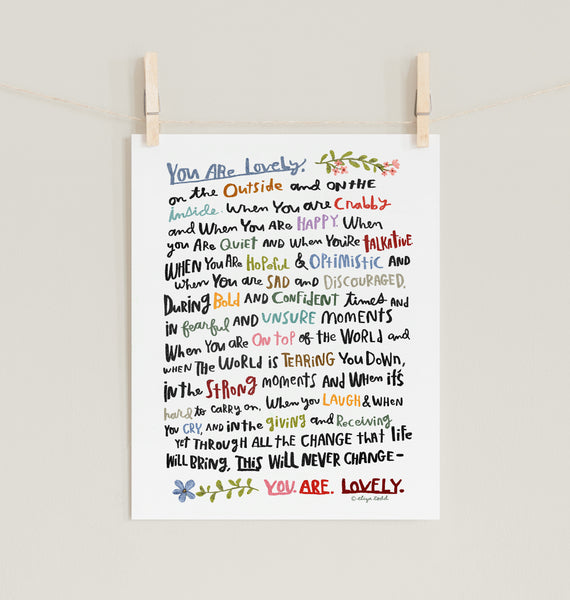 You Are Lovely.
on the Outside and on the
inside. When You are Crabby
and When You Are Happy. When
you Are Quiet and when You're talkative
When You Are Hopeful & Optimistic and
when You are Sad and Discouraged.
During Bold and Confident times and
in fearful and Unsure moments
When You are On top of the World and
when the World is Tearing You Down,
in the Strong moments and When it's
hard to carry on. When you Laugh & When
You Cry, and in the giving and Receiving
yet through all the change that life
will bring, this will never change-
You. Are. Lovely.
© eliza todd